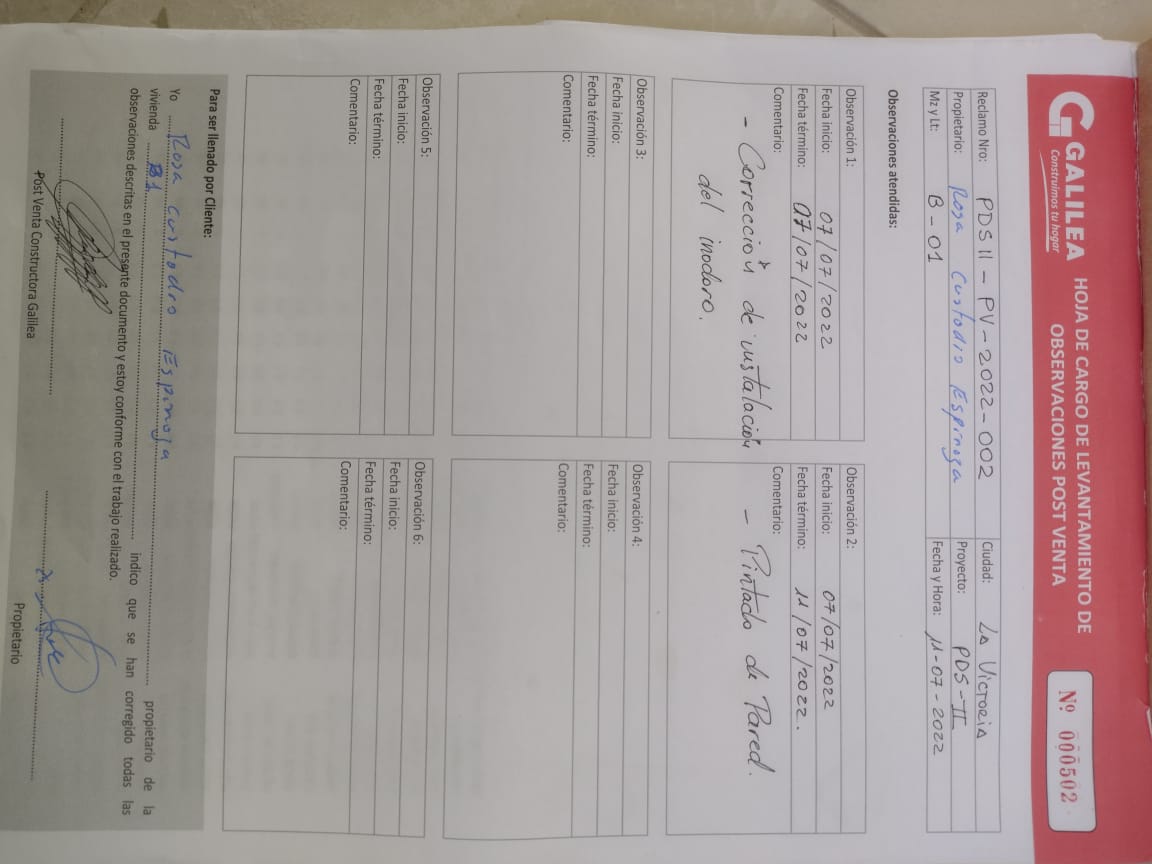 GALILEA
Construimos tu hogar
HOJA DE CARGO DE LEVANTAMIENTO DE
OBSERVACIONES POST VENTA
Nº 000502
Reclamo Nro: PDS II - PV - 2022 - 002
Ciudad: La Victoria
Propietario: Rosa Custodio Espinoza
Proyecto: PDS - II
Mz y Lt: B - 01
Fecha y Hora: 11 - 07 - 2022
Observaciones atendidas:
Observación 1:
Fecha inicio: 07/07/2022
Fecha término: 07/07/2022
Comentario:
- Corrección de instalación
del inodoro.
Observación 2:
Fecha inicio: 07/07/2022
Fecha término: 11/07/2022.
Comentario:
- Pintado de Pared.
Observación 3:
Fecha inicio:
Fecha término:
Comentario:
Observación 4:
Fecha inicio:
Fecha término:
Comentario:
Observación 5:
Fecha inicio:
Fecha término:
Comentario:
Observación 6:
Fecha inicio:
Fecha término:
Comentario:
Para ser llenado por Cliente:
Yo Rosa Custodio Espinoza propietario de la
vivienda B1 indico que se han corregido todas las
observaciones descritas en el presente documento y estoy conforme con el trabajo realizado.
Post Venta Constructora Galilea
Propietario